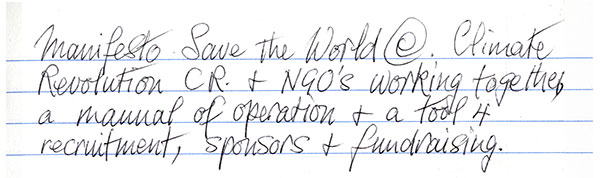 Manifesto Save the World ⓒ. Climate
Revolution CR. + NGO's working together,
a manual of operation + a tool 4
recruitment, sponsors + fundraising.